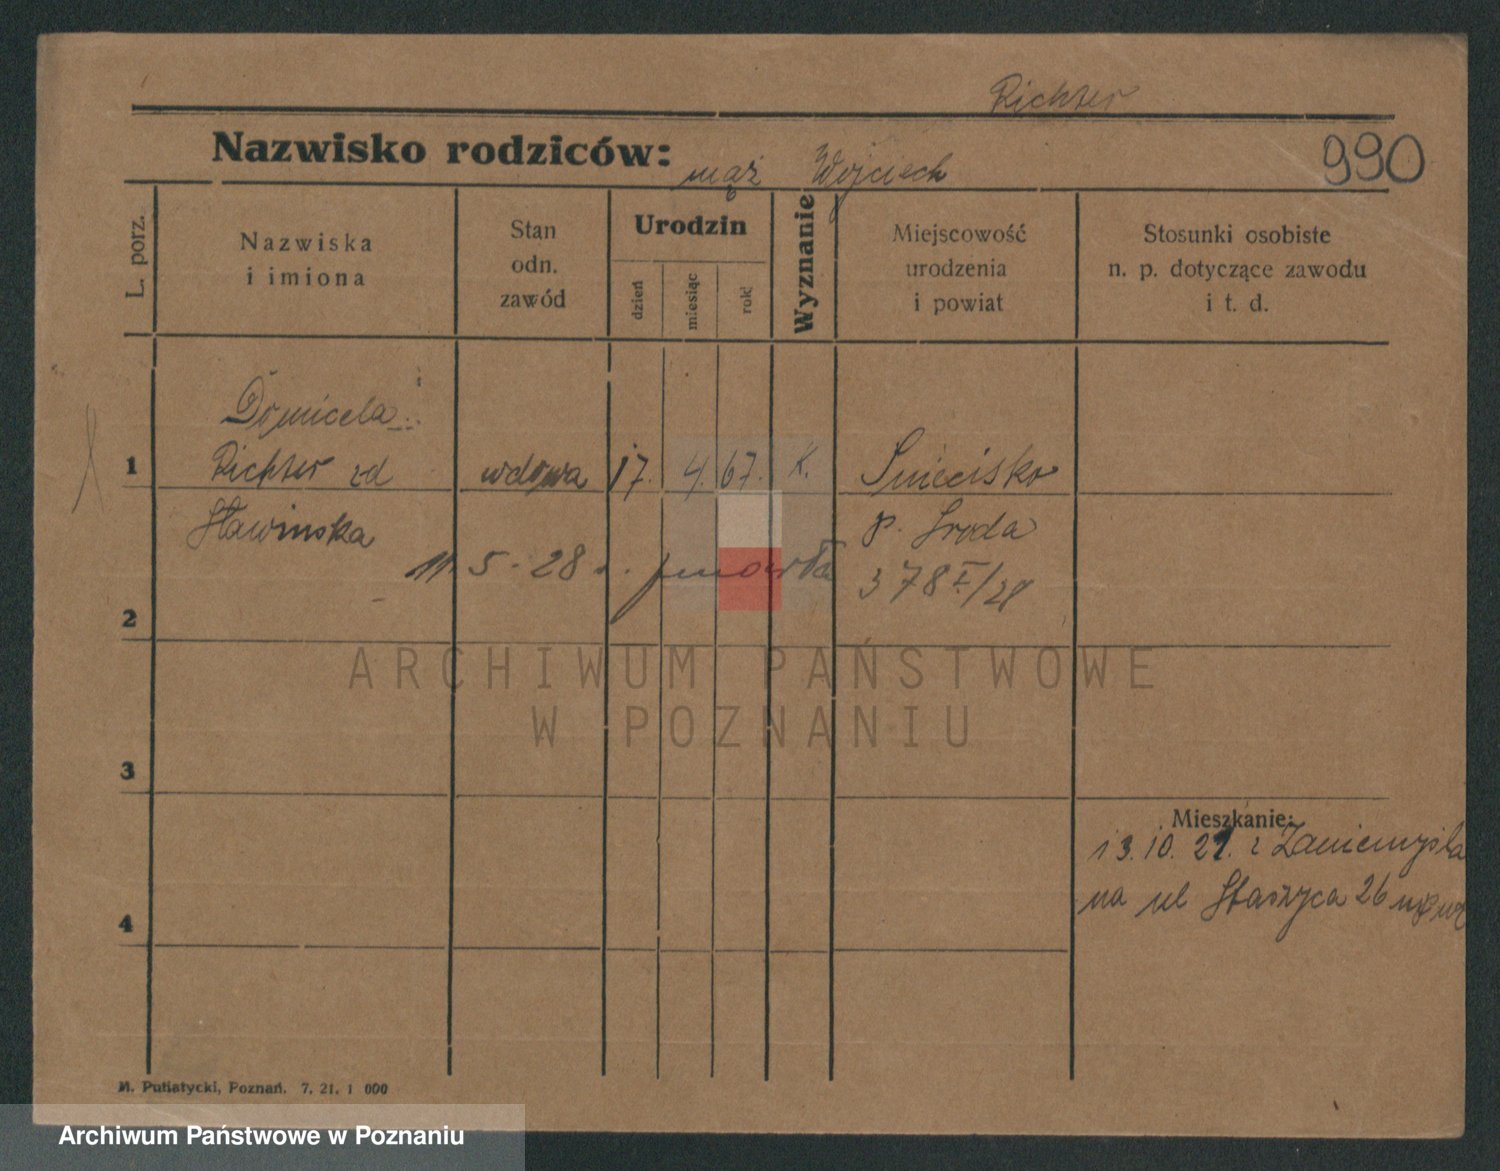 Richter
Nazwisko rodziców: mąż Wojciech
990
L. porz.
Nazwiska
i imiona
Stan
odn.
zawód
Urodzin
dzień
miesiąc
rok
Wyznanie
Miejscowość
urodzenia
i powiat
Stosunki osobiste
n. p. dotyczące zawodu
i t. d.
Domicela
1 Richter zd wdowa 17. 4. 67. K. Śniecisko
Sławinska p. Sroda
11. 5 - 28 zmarła 378 I/28
2
ARCHIWUM PAŃSTWOWE
W POZNANIU
3
Mieszkanie:
13. 10. 21. z Zaniemyśla
na ul Staszyca 26
4
M. Putiatycki, Poznań. 7. 21. 1 000
Archiwum Państwowe w Poznaniu